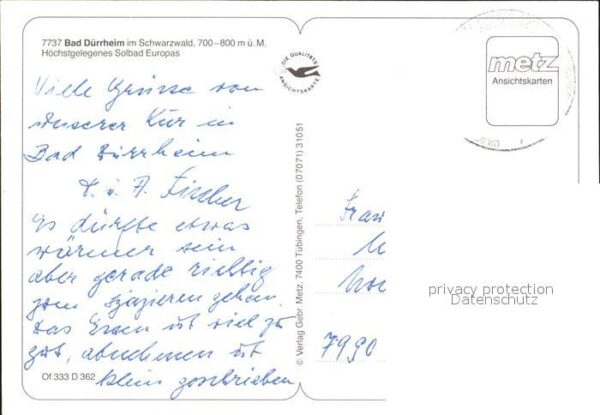 7737 Bad Dürrheim im Schwarzwald, 700–800 m ü. M.
Höchstgelegenes Solbad Europas
Viele Grüsse von
unserer Kur in
Bad Dürrheim
F. u. A. Fischer
Es dürfte etwas
wärmer sein
aber gerade richtig
zum spazieren gehen.
Das Essen ist viel zu
gut, abnehmen ist
klein geschrieben
Of 333 D 362
DIE QUALITÄTS
ANSICHTSKARTE
© Verlag Gebr. Metz, 7400 Tübingen, Telefon (07071) 31051
metz
Ansichtskarten
7990
privacy protection
Datenschutz